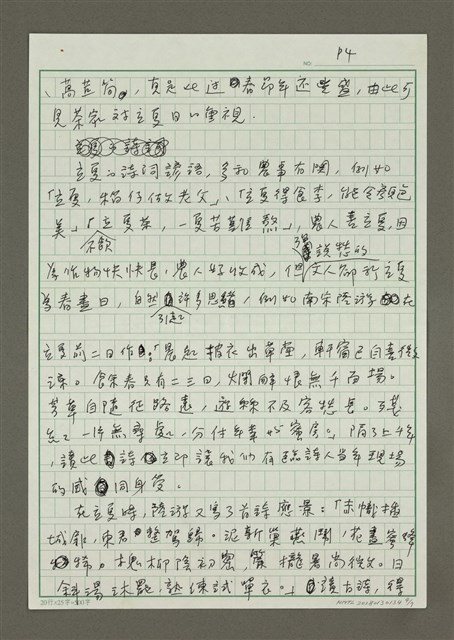 P4
NO.
、萵苣筍,真是比過春節年還豐盛,由此可
見茶家对立夏日的重視.
立夏的詩词諺語,多和農事有関,例如
「立夏,稻仔做老父」、「立夏得食李,能令顏色
美」「立夏茶,一夏苦
農人喜立夏,因
為作物快快長,農人好收成,但文人卻於立夏
不飲
說愁的
為春盡日,自然許多思緒,例如南宋陸游在
引起
立夏前二日作:「晨起披衣出草堂,軒窗已自喜微
涼。餘春只有二三日,爛醉恨無千百場。
芳草自隨征路遠,遊絲不及客愁長。
一非無尋處,分付年華與蜜房。」
讀此詩立即讓我們有臨詩人当年現場
的感同身受。
在立夏時,陸游又寫了首詩應景:「赤幟插
城扉,東君整駕歸。泥新巢燕鬧,花盡蜜蜂
稀。槐柳陰初密,簾櫳暑尚微。日
斜湯沐罷,熟練試單衣。」讀古詩,得
20行×25字=500字